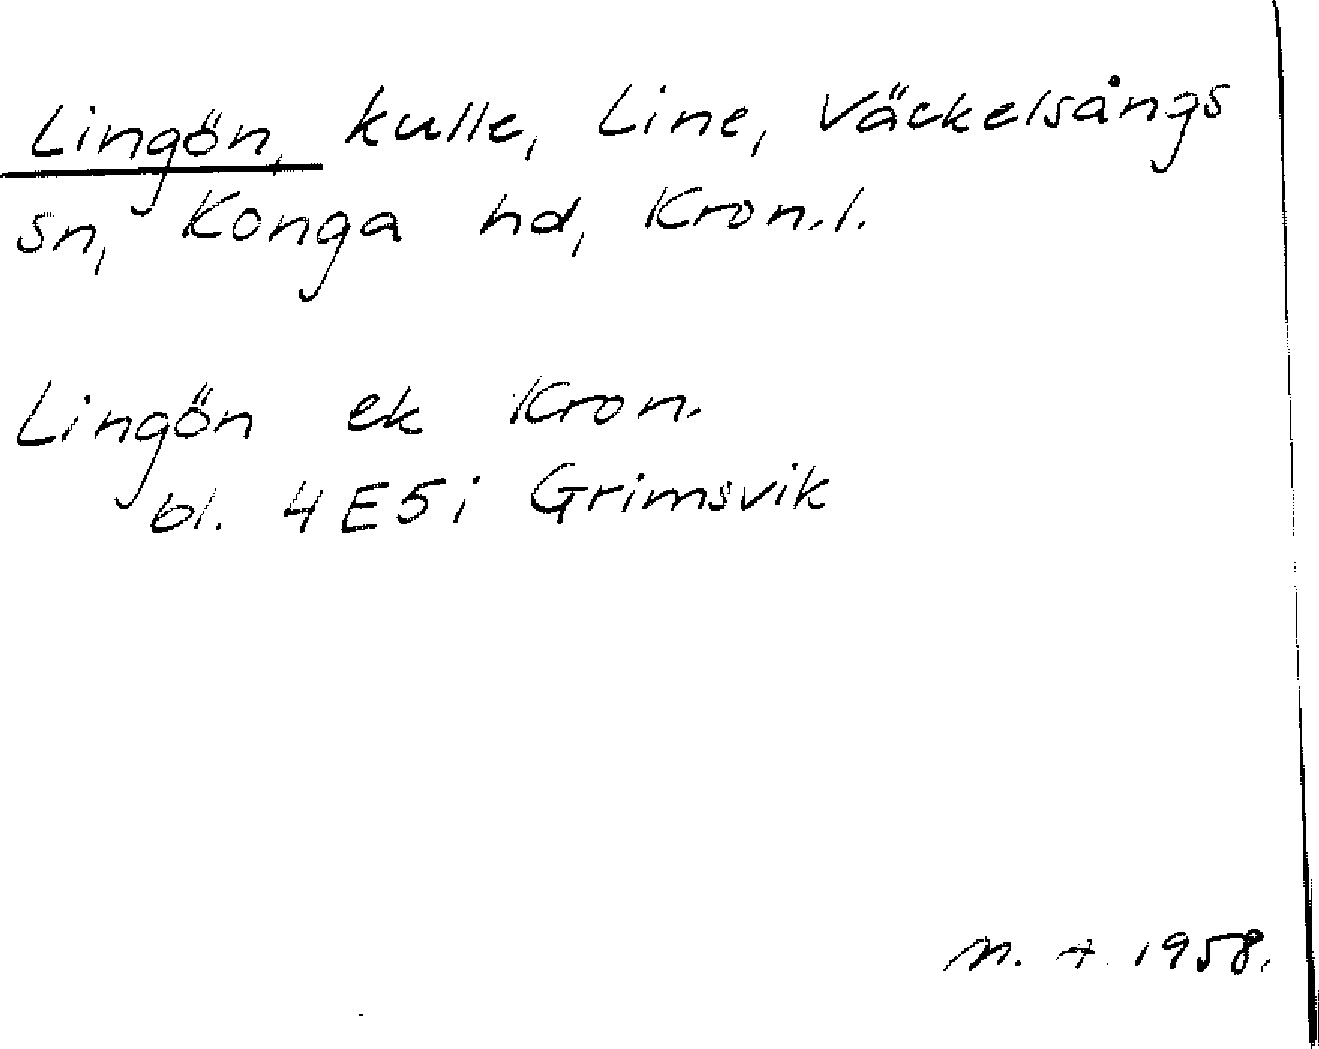 Lingön, kulle, Line, Väckelsångs
sn, Konga hd, Kron.l.
Lingön ek Kron.
bl. 4E5i Grimsvik
M. A. 1958.